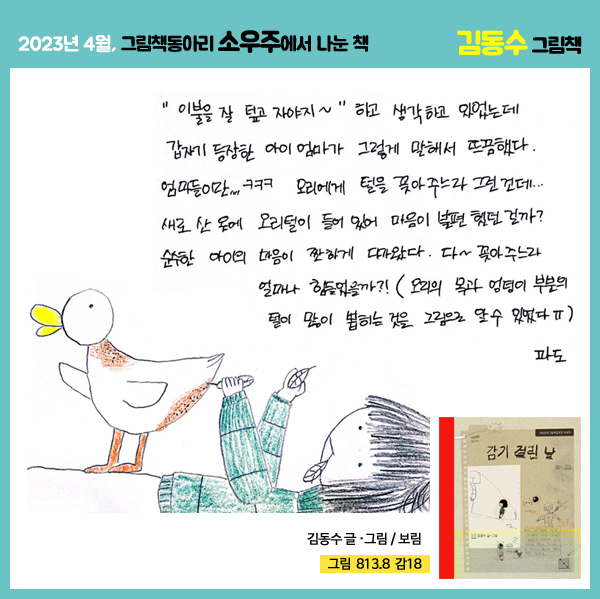 2023년 4월, 그림책동아리 소우주에서 나눈 책
김동수 그림책
"이불을 잘 덮고 자야지~" 하고 생각하고 있었는데
갑자기 등장한 아이 엄마가 그렇게 말해서 뜨끔했다.
엄마들이란,,, ㅋㅋㅋ 오리에게 털을 꽂아주느라 그런건데...
새로 산 옷에 오리털이 들어 있어 마음이 불편 했던 걸까?
순수한 아이의 마음이 짠하게 다가왔다. 다~ 꽂아주느라
얼마나 힘들었을까?! (오리의 목과 엉덩이 부분의
털이 많이 뽑히는 것을 그림으로 알 수 있었다ㅠ)
파도
감기 걸린 날
김동수 글·그림 / 보림
그림 813.8 감18